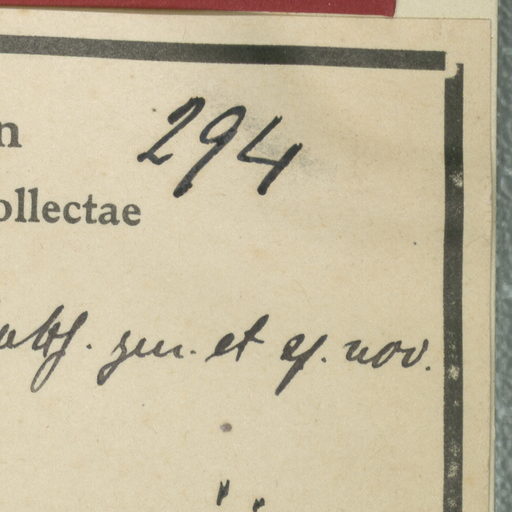 n
294
ollectae
gen. et sp. nov.